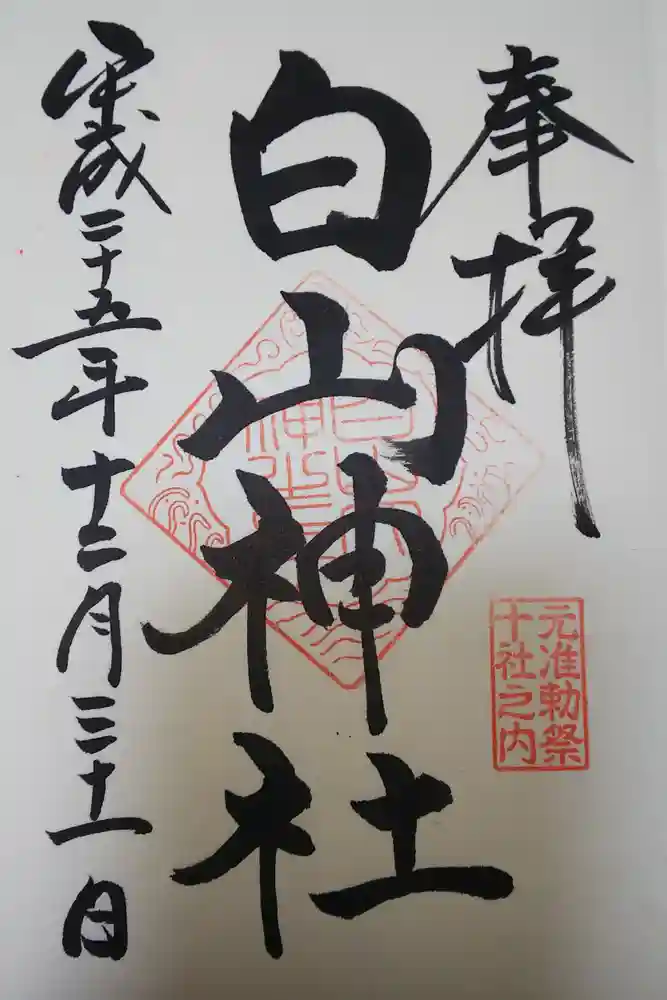 奉拝
白山神社
平成二十五年十二月三十一日
元准勅祭
十社之内